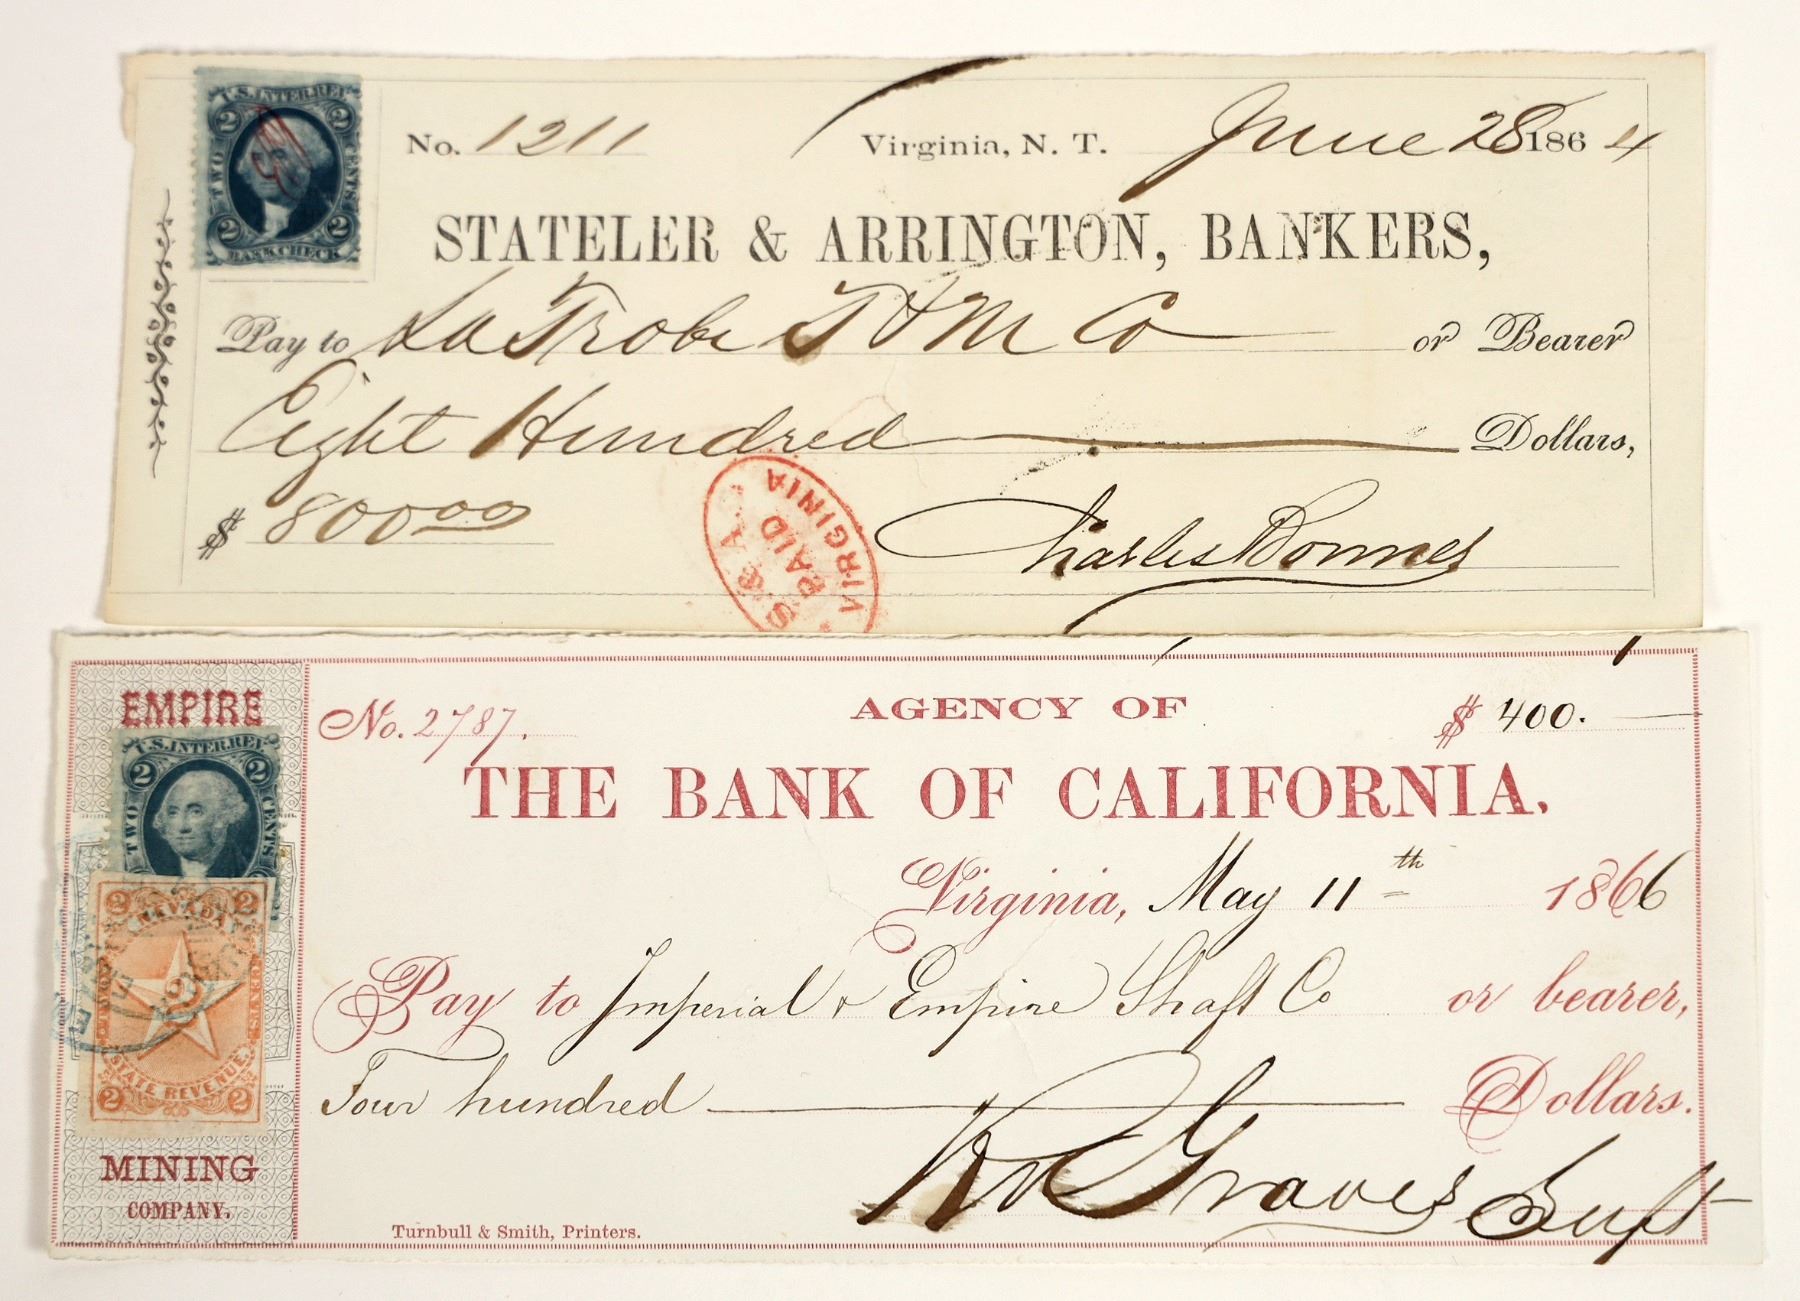 U.S. INTER. REV.
2 2
TWO CENTS
2 2
BANK CHECK
No. 1211 Virginia, N. T. June 28 1864
STATELER & ARRINGTON, BANKERS,
Pay to La Trobe T & M Co or Bearer
Eight Hundred Dollars,
$ 800 00
S. & A.
PAID
VIRGINIA
VIRGINIA
Charles Bonner
EMPIRE
MINING
COMPANY.
U.S. INTER. REV.
2 2
TWO CENTS
2 NEVADA 2
CENTS
2
STATE REVENUE.
2 2
No. 2787. AGENCY OF $ 400.
THE BANK OF CALIFORNIA.
Virginia, May 11th 1866
Pay to Imperial & Empire Shaft Co or bearer,
Four hundred Dollars.
Graves Supt
Turnbull & Smith, Printers.